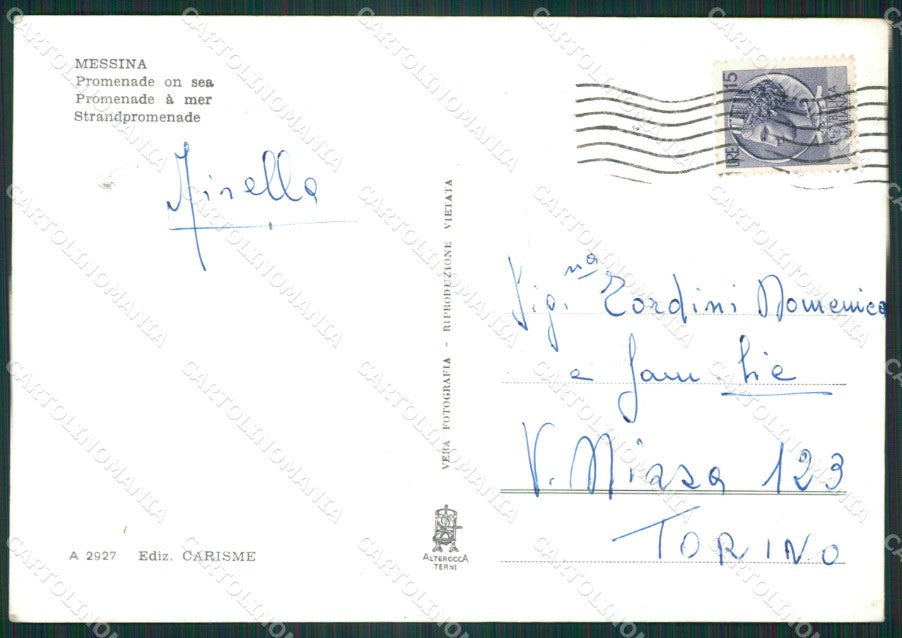 MESSINA
Promenade on sea
Promenade à mer
Strandpromenade
Mirella
VERA FOTOGRAFIA - RIPRODUZIONE VIETATA
LIRE 15
REPUBBLICA ITALIANA
Sig.na Tordini Domenica
e fam lie
V. Nizza 123
TORINO
A 2927 Ediz. CARISME
ALTEROCCA
TERNI
CARTOLINOMANIA